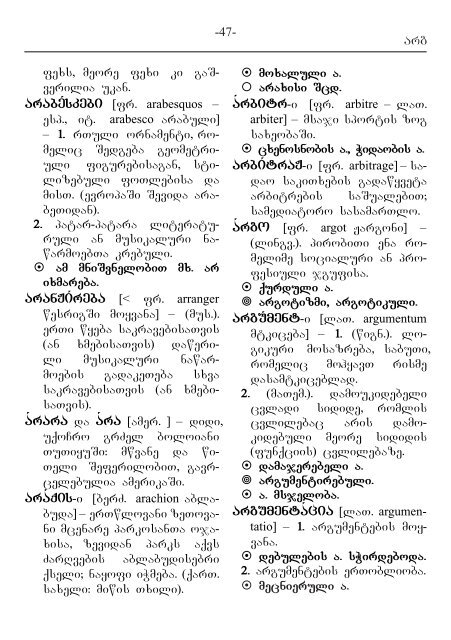 -47-
არგ
ფეხს, მეორე ფეხი კი გაშ-
ვერილია უკან.
არაბესკები [ფრ. arabesquos –
ესპ., იტ. arabesco არაბული]
– 1. რთული ორნამენტი, რო-
მელიც შედგება გეომეტრი-
ული ფიგურებისაგან, სტი-
ლიზებული ფოთლებისა და
მისთ. (ევროპაში შევიდა არა-
ბეთიდან).
2. პატარ-პატარა ლიტერატუ-
რული ან მუსიკალური ნა-
წარმოებთა კრებული.
⦿ ამ მნიშვნელობით მხ. არ
იხმარება.
არანჟირება [< ფრ. arranger
წესრიგში მოყვანა] – (მუს.).
ერთი წყება საკრავებისათვის
(ან ხმებისათვის) დაწერი-
ლი მუსიკალური ნაწარ-
მოების გადაკეთება სხვა
საკრავებისათვის (ან ხმები-
სათვის).
არარა და არა [ამერ. ] – დიდი,
უქოჩრო გრძელ ბოლოიანი
თუთიყუში: მწვანე და წი-
თელი შეფერილობით, გავრ-
ცელებულია ამერიკაში.
არაქის-ი [ბერძ. arachion აბლა-
ბუდა] – ერთწლოვანი ზეთოვა-
ნი მცენარე პარკოსანთა ოჯა-
ხისა, ზევიდან პარკს აქვს
ძარღვების აბლაბუდისებრი
ქსელი; ნაყოფი იჭმება. (ქართ.
სახელი: მიწის თხილი).
⦿ მოხალული ა.
○ არახისი შცდ.
არბიტრ-ი [ფრ. arbitre – ლათ.
arbiter] – მსაჯი სპორტის ზოგ
სახეობაში.
⦿ ცხენოსნობის ა., ჭიდაობის ა.
არბიტრაჟ-ი [ფრ. arbitrage] – სა-
დაო საკითხების გადაწყვეტა
არბიტრების საშუალებით;
სამედიატორო სასამართლო.
არგო [ფრ. argot ჟარგონი] –
(ლინგვ.). პირობითი ენა რო-
მელიმე სოციალური ან პრო-
ფესიული ჯგუფისა.
⦿ ქურდული ა.
◎ არგოტიზმი, არგოტიკული.
არგუმენტ-ი [ლათ. argumentum
მტკიცება] – 1. (წიგნ.). ლო-
გიკური მოსაზრება, საბუთი,
რომელიც მოჰყავთ რისმე
დასამტკიცებლად.
2. (მათემ.). დამოუკიდებელი
ცვლადი სიდიდე, რომლის
ცვლილებაც არის დამო-
კიდებული მეორე სიდიდის
(ფუნქციის) ცვლილებაზე.
⦿ დამაჯერებელი ა.
◎ არგუმენტირებული.
⦿ ა. მსჯელობა.
არგუმენტაცია [ლათ. argumen-
tatio] – 1. არგუმენტების მოყ-
ვანა.
⦿ დებულების ა. სჭირდებოდა.
2. არგუმენტების ერთობლიობა.
⦿ მეცნიერული ა.